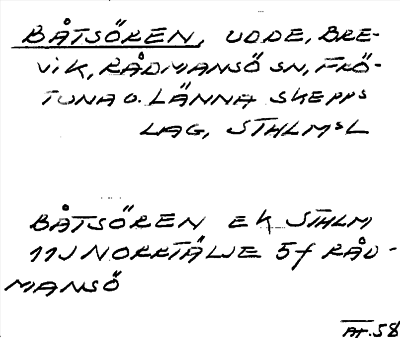 BÅTSÖREN, UDDE, BRE-
VIK, RÅDMANSÖ SN, FRÖ-
TUNA O. LÄNNA SKEPPS
LAG, STHLMSL
BÅTSÖREN EK STHLM
11J NORRTÄLJE 5f RÅD-
MANSÖ
AF.58